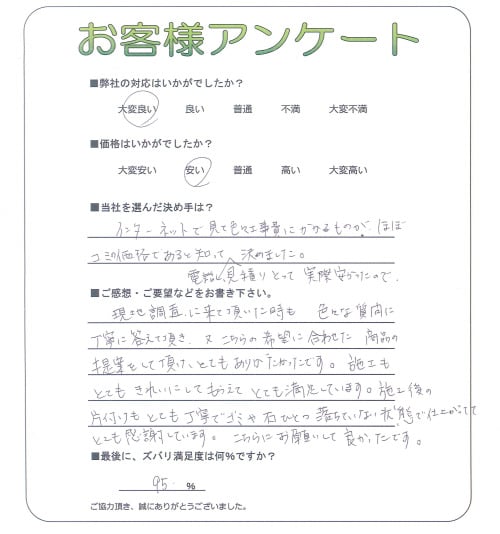 お客様アンケート
■弊社の対応はいかがでしたか？
大変良い 良い 普通 不満 大変不満
■価格はいかがでしたか？
大変安い 安い 普通 高い 大変高い
■当社を選んだ決め手は？
インターネットで見て色々工事費にかかるものが、ほぼ
コミの価格であると知って 決めました。
電話し見積りとって実際安かったので、
■ご感想・ご要望などをお書き下さい。
現地調査に来て頂いた時も 色々な質問に
丁寧に答えて頂き、又こちらの希望に合わせた 商品の
提案をして頂け、とてもありがたかったです。施工も
とてもきれいにしてもらえて とても満足しています。施工後の
片付けもとても丁寧でゴミや石ひとつ落ちていない状態で仕上がってて
とても感謝しています。こちらにお願いして良かったです。
■最後に、ズバリ満足度は何%ですか？
95 %
ご協力頂き、誠にありがとうございました。